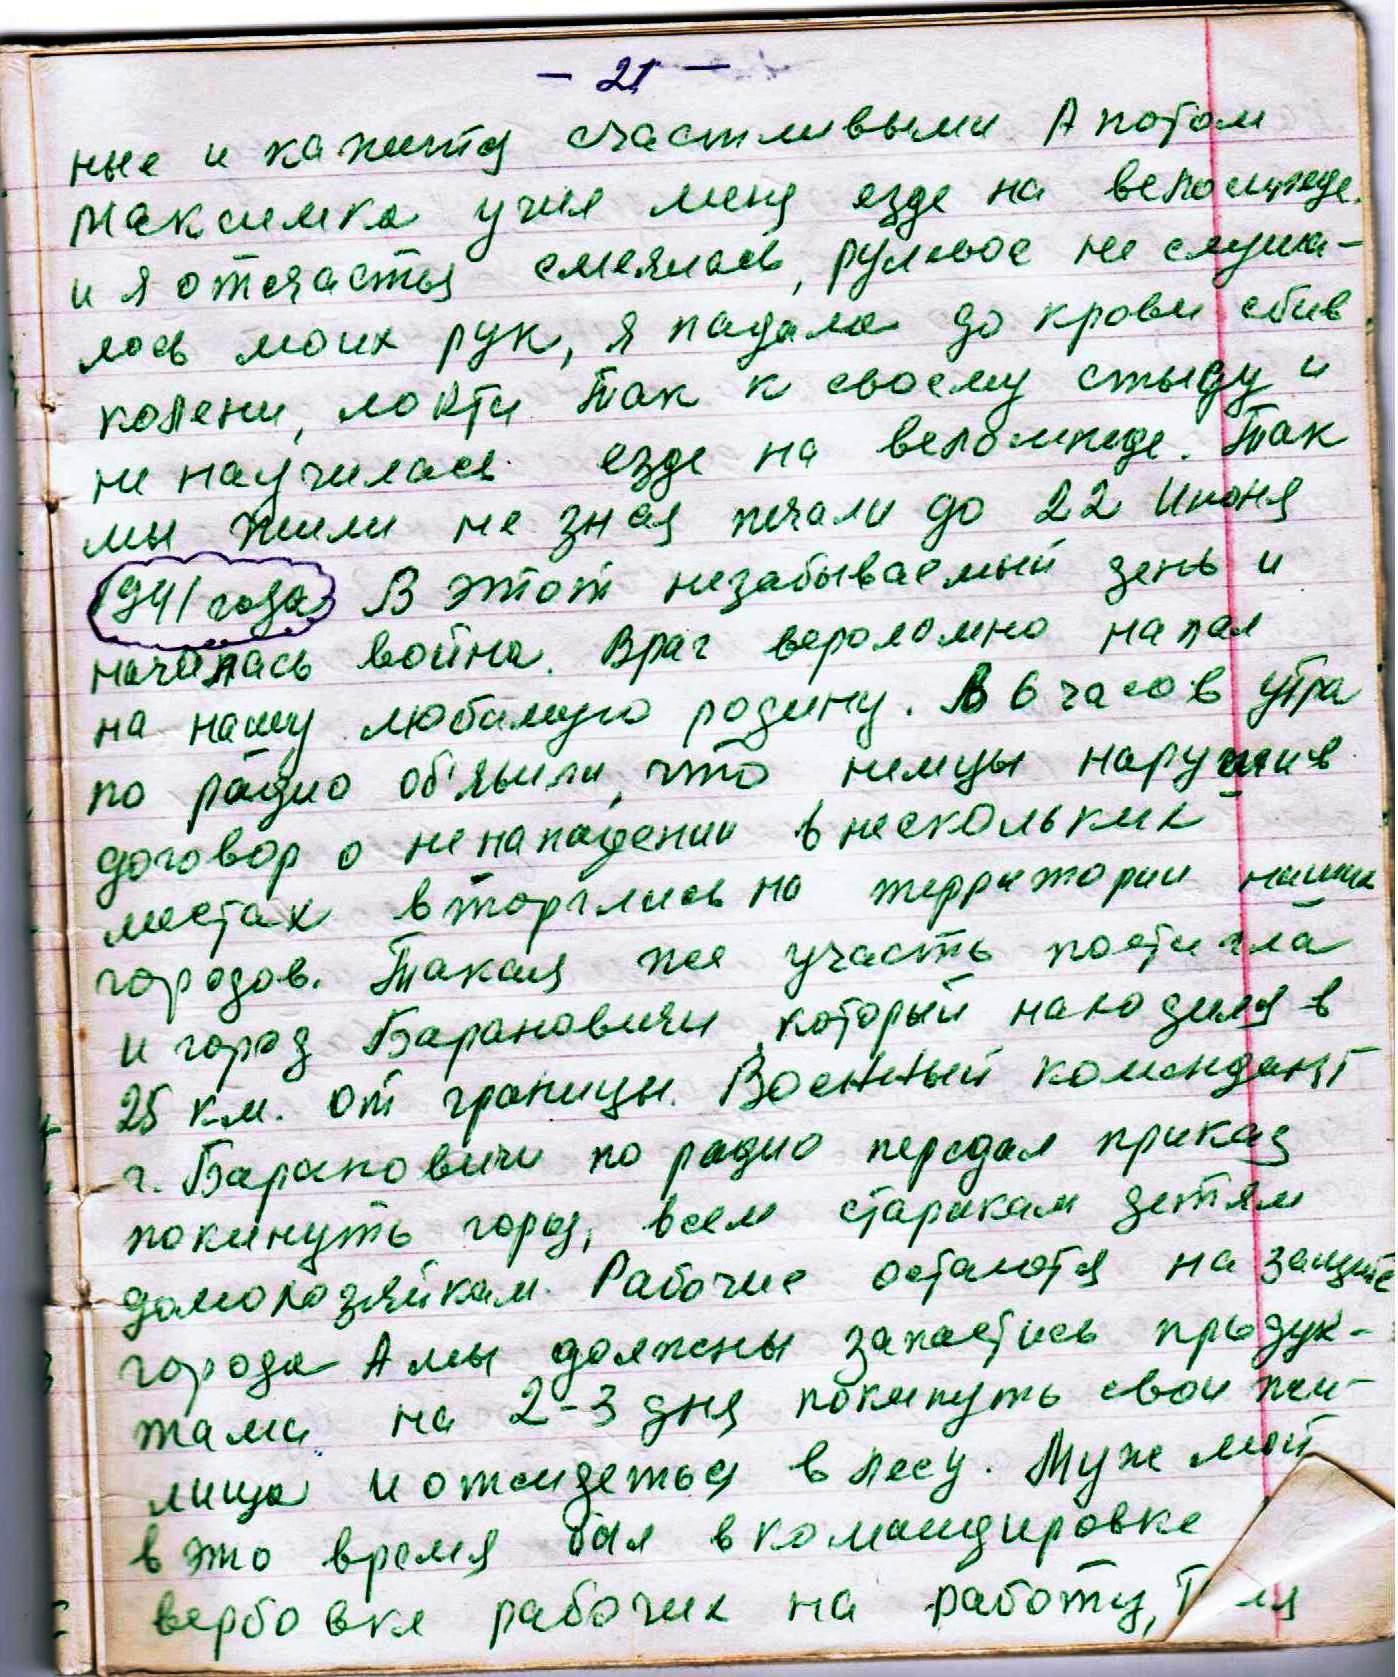 - 21 -
ные и кажится счастливыми А потом
Максимка учил меня езде на велосипеде.
и я отсчастья смеялась, рулевое не слуша-
лось моих рук, я падала до крови сбив
колени, локти Так к своему стыду и
не научилась езде на велосипеде. Так
мы жили не зная печали до 22 Июня
1941 года В этот незабываемый день и
началась война. Враг вероломно напал
на нашу любимую родину. В 6 часов утра
по радио об'явили, что немцы нарушив
договор о ненападении в нескольких
местах вторглись на территории наших
городов. Такая же участь постигла
и город Барановичи который находился в
25 км. от границы. Военный комендант
г. Барановичи по радио передал приказ
покинуть город, всем старикам детям
домохозяйкам. Рабочие остаются на защите
города А мы должны запастись продук-
тами на 2-3 дня покинуть свои жи-
лища и отсидеться в лесу. Муж мой
в это время был в командировке
вербовке рабочих на работу,